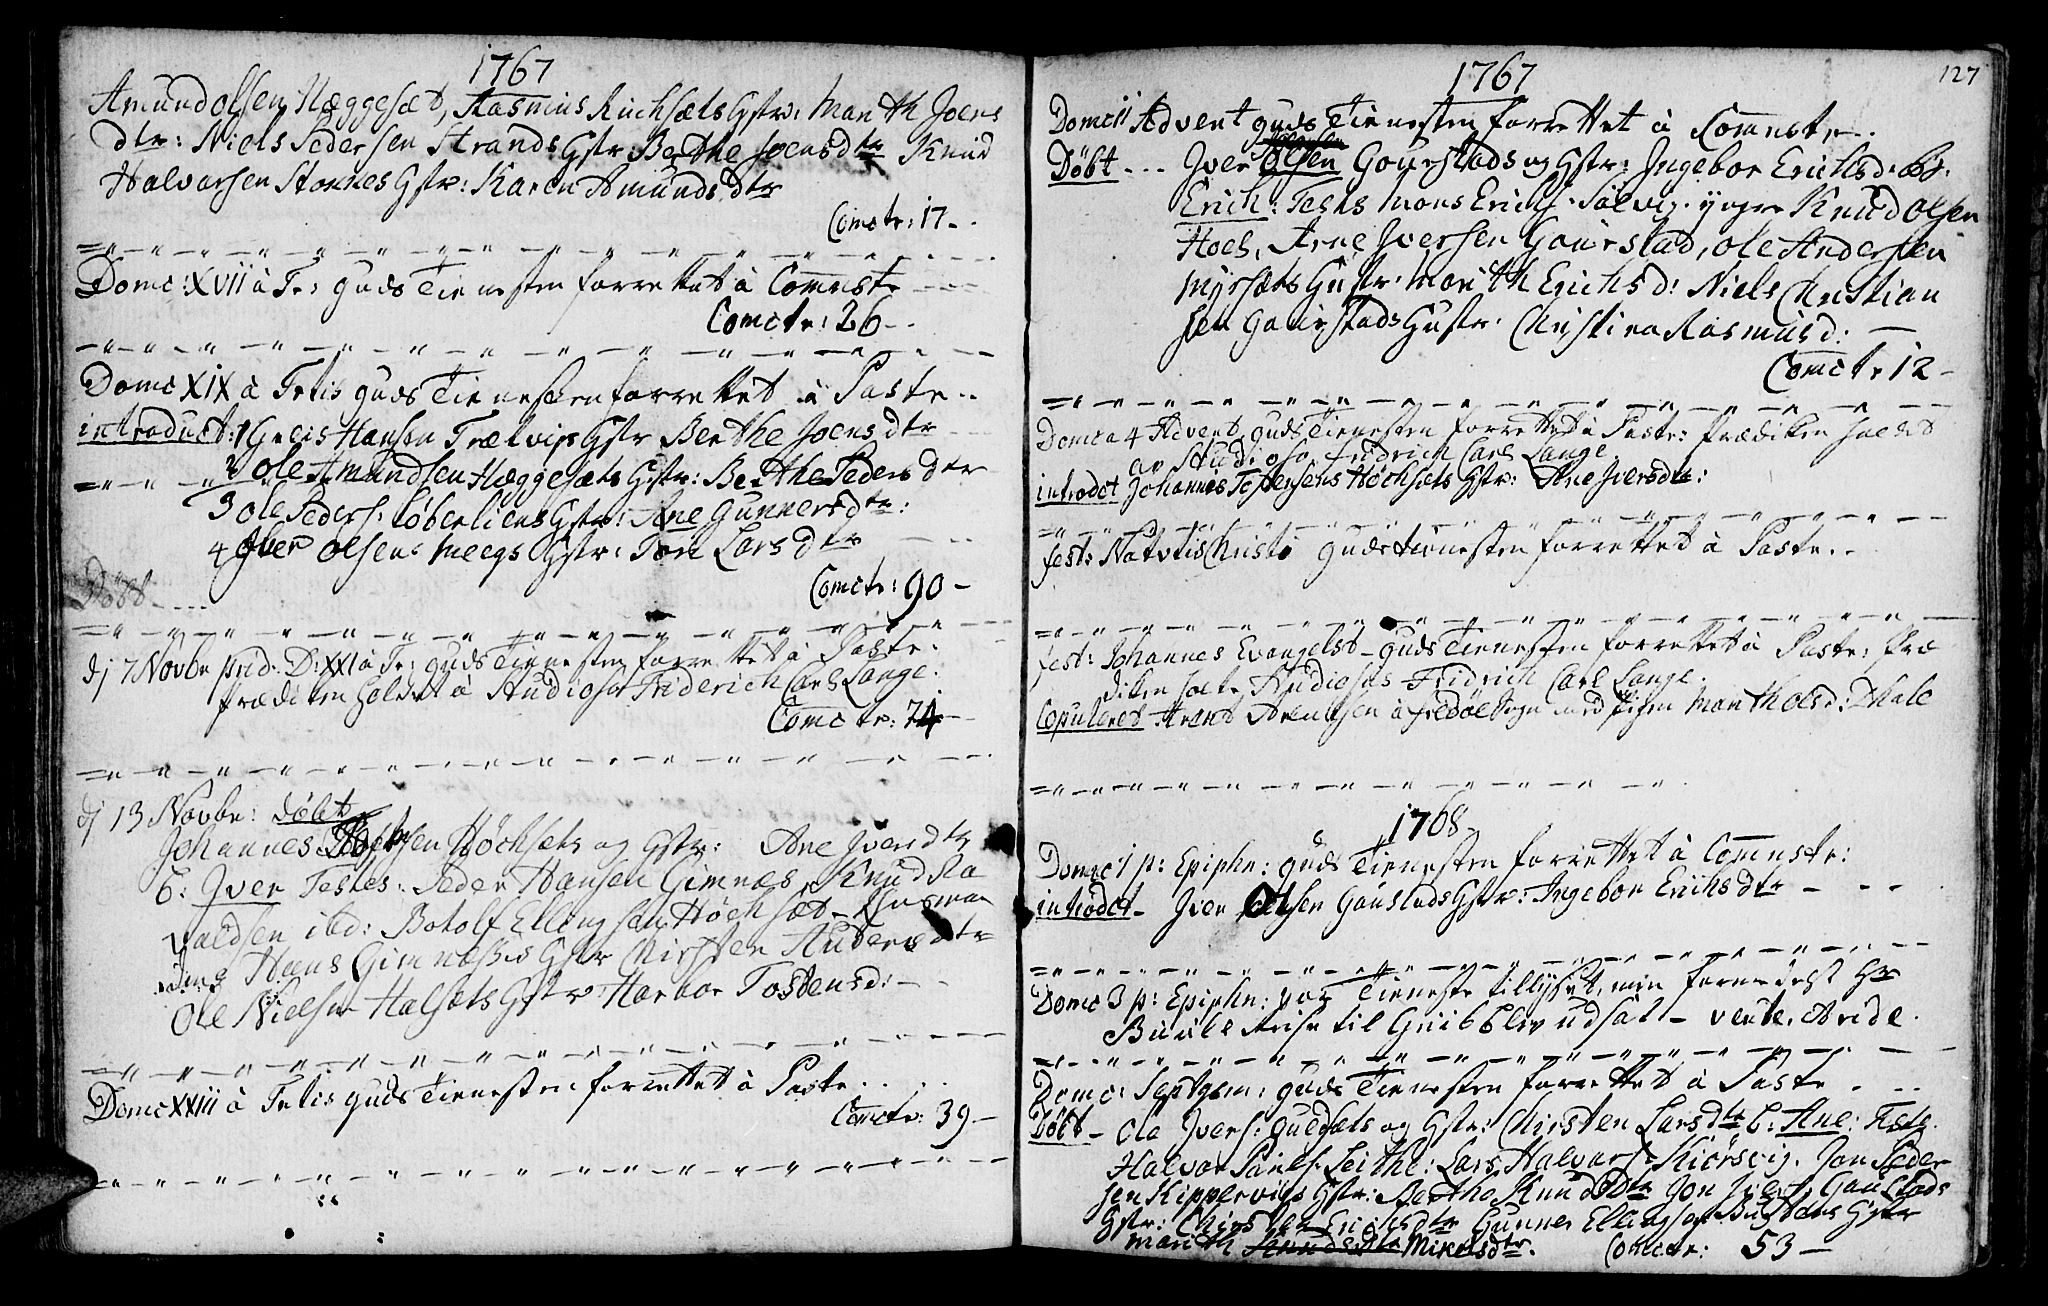 1767
Amund Olsen Hæggesæt, Rasmus Ruchsæts Gstr: Marith Joens
dtr: Niels Pedersen Strands Gstr: Berthe Joensdtr Knud
Halvorsen Stornes Gstr: Karen Amunds dtr
Comctr: 17
Domc: XVII à Tr: Guds Tienesten forrettet à Comnstr
Comctr: 26
Domc XIX à Trtis Guds Tienesten forrettet à Pastr
introduct: 1 Greis Hansen Trælvigs Gstr Berthe Joens dtr
2 Ole Amundsen Hæggesæts Gstr: Berthe Peders dtr
3 Ole Peders: Løberliens Gstr: Ane Gunnersdtr:
4 Jver Olsens Meegs Gstr: Tore Lars dtr
Comctr: 90
Døbt
dj 7 Novbr prid: D: XXI à Tr: Guds Tienesten forrettet à Pastr:
Prædiken holdet à Studioso Friderich Carl Lange:
Comctr: 74
dj 13 Novbr: Døbt
Johannes Tostensen Høchsæts og Gstr: Ane Jversdtr
b: Jver Testes: Peder Hansen Gimnæs, Knud Ra
valdsen ibd: Botolf Ellingsen Høchsæt
Hans Gimnæsses Gstr Kirsten Andersdtr
Ole Nielsen Halsæts Gstr: Harbor Tostensd:
Domc XXIII à Trtis Guds Tienesten forrettet à Pastr
Comctr: 39
1767
127
Domc 11 Advent Guds Tienesten forrettet à Comnstr
Døbt Jver Olsen Gourstads og Gstr: Ingebor Erichsd: b:
Erich: Testes Mons Erichs: Sølvig. yngre Knud Olsen
Hoel, Arne Jversen Gourstad, Ole Andersen
Myrsæts Gustr: Marith Erichsd: Niels Christian
sen Gourstads Gustr: Christina Rasmusd:
Comctr 12
Domca 4 Advent Guds Tienesten forrettet à Pastr: Prædiken holdet
av Studioso Fridrich Carl Lange.
introdct Johannes Tostensens Høchsæts Gstr: Ane Jversdtr:
fest: Nativtis Christi Guds tienesten forrettet à Pastr
fest: Johannes Evangelst Guds Tienesten forrettet à Pastr: Præ
diken holdt Studiosus Fridrich Carl Lange.
Copuleret Arent Arentsen à Fredøe Sogn med Pigen Marith Olsd: Dhale
1768
Domc 1 p: Epiphn: Guds Tienesten forrettet à Comnstr:
introdct Jver Olsen Goustads Gstr: Ingebor Erichsdtr
Domc 3 p: Epiphn: var Tieneste tillyset, men formedelst Hr
Buuels Reise til Gribblev udsat
Domc: Septgsm: Guds Tienesten forrettet à Pastr
Døbt Ole Jvers: Guldsæts og Gstr: Chirsten Larsdtr b: Ane: Tests.
Halvor Pouls: Leithe: Lars Halvars: Kiørsvig. Jon Peder
sen Kippervigs Gstr: Berthe Knudsdtr Jon Jvers: Goustads
Gstr: Chirsten Erichsdtr Gunner Ellingsen Bugtens Gstr
Marith Mikelsdtr. Comctr: 53